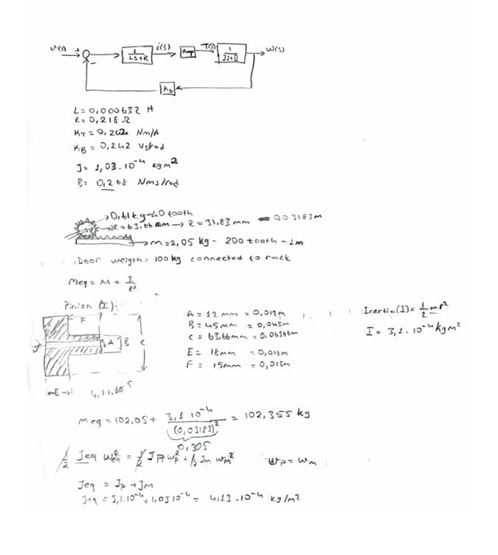 V(s) + - 1/(Ls+R) i(s) T(s) 1/(Js+B) W(s)
KB
L = 0,000632 H
R = 0,218 Ω
KT = 0,242 Nm/A
KB = 0,242 Vs/rad
J = 1,03.10^-4 kgm^2
B = 0,268 Nms/rad
0,61 kg-40 tooth
R = 63,66 mm → r = 31,83 mm 0,03183m
m = 2,05 kg - 200 tooth - 2m
Door weigth = 100kg connected to rack
Meq = M + I/r^2
Pinion (I):
F A B C E
A = 12 mm = 0,012m
B = 45mm = 0,045m
C = 63,66mm = 0,06366m
E = 18mm = 0,018m
F = 15mm = 0,015m
Inertia(I) = 1/2 m r^2
I = 3,1.10^-4 kgm^2
Meq = 102,05 + 3,1.10^-4/(0,03183)^2 = 102,355 kg
0,305
1/2 Jeq weq^2 = 1/2 Jp wp^2 + 1/2 Jm wm^2 wp = wm
Jeq = Jp + Jm
Jeq = 3,1.10^-4 + 1,03.10^-4 = 4,13.10^-4 kg/m^2